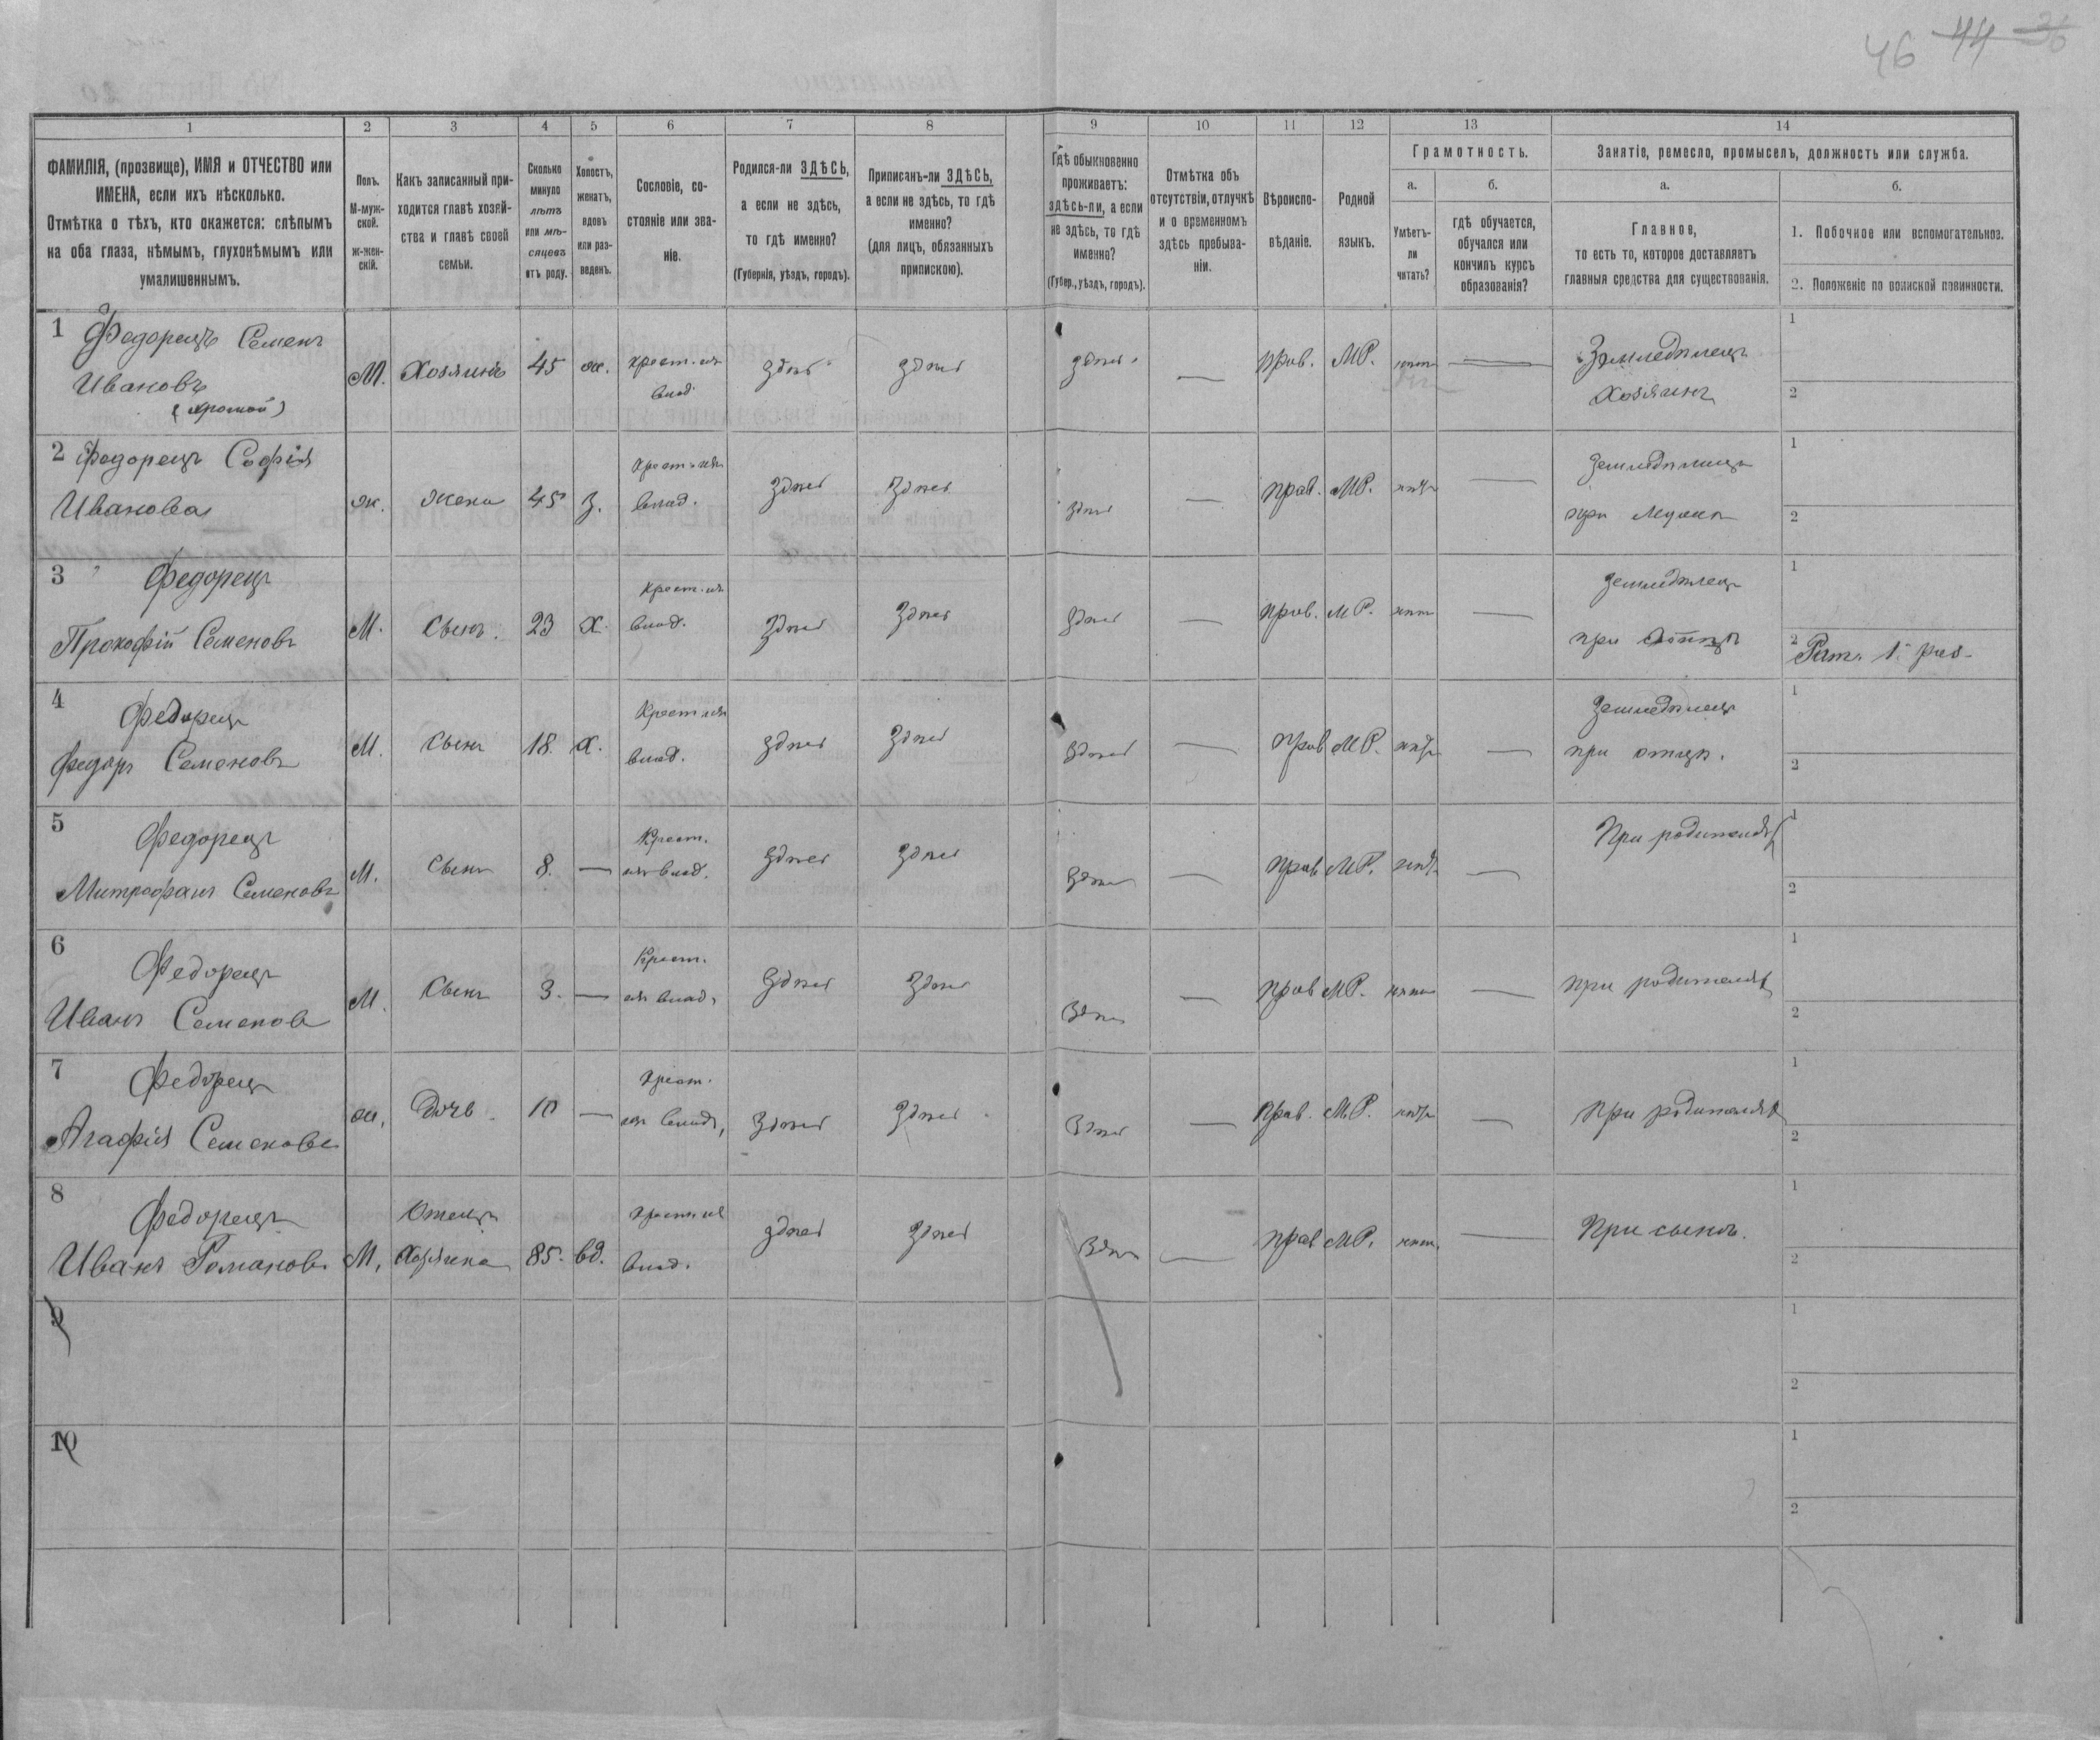 46 44 36
1 2 3 4 5 6 7 8 9 10 11 12 13 14
ФАМИЛІЯ, (прозвище), ИМЯ и ОТЧЕСТВО или ИМЕНА, если ихъ нѣсколько.
Отмѣтка о тѣхъ, кто окажется: слѣпымъ на оба глаза, нѣмымъ, глухонѣмымъ или умалишеннымъ.
Полъ. М-мужской. ж-женскій.
Какъ записанный приходится главѣ хозяйства и главѣ своей семьи.
Сколько минуло лѣтъ или мѣсяцевъ отъ роду.
Холостъ, женатъ, вдовъ или разведенъ.
Сословіе, состояніе или званіе.
Родился-ли ЗДѢСЬ, а если не здѣсь, то гдѣ именно? (Губернія, уѣздъ, городъ).
Приписанъ-ли ЗДѢСЬ, а если не здѣсь, то гдѣ именно? (для лицъ, обязанныхъ припискою).
Гдѣ обыкновенно проживаетъ: здѣсь-ли, а если не здѣсь, то гдѣ именно? (Губер., уѣздъ, городъ).
Отмѣтка объ отсутствіи, отлучкѣ и о временномъ здѣсь пребываніи.
Вѣроисповѣданіе.
Родной языкъ.
Грамотность.
а. Умѣетъ-ли читать?
б. гдѣ обучается, обучался или кончилъ курсъ образованія?
Занятіе, ремесло, промыселъ, должность или служба.
а. Главное, то есть то, которое доставляетъ главныя средства для существованія.
б.
1. Побочное или вспомогательное.
2. Положеніе по воинской повинности.
1 Федорецъ Семенъ Ивановъ (хромой) М. Хозяинъ 45 ж. крест. изъ влад. здѣсь здѣсь здѣсь — прав. МР. нѣтъ — Земледѣлецъ Хозяинъ 1 2
2 Федорецъ Софія Иванова ж. жена 45 з. крест. изъ влад. здѣсь здѣсь здѣсь — прав. МР. нѣтъ — земледѣлецъ при мужѣ 1 2
3 Федорецъ Прокофій Семеновъ М. Сынъ. 23 х. крест. изъ влад. здѣсь здѣсь здѣсь — прав. МР. нѣтъ — земледѣлец при отцѣ 1 2 Рат. 1. раз.
4 Федорец Федоръ Семеновъ М. Сынъ 18. х. Крест изъ влад. здѣсь здѣсь здѣсь — прав МР. нѣтъ — земледѣлецъ при отцѣ. 1 2
5 Федорецъ Митрофанъ Семеновъ М. Сынъ 8. — Крест. изъ влад. здѣсь здѣсь здѣсь — прав МР. нѣтъ — При родителях 1 2
6 Федорецъ Иванъ Семенов М. Сынъ 3. — Крест. изъ влад. здѣсь здѣсь здѣсь — прав МР. нѣтъ — при родителях 1 2
7 Федорец Агафія Семенова ж. Дочь 10 — крест. изъ влад. здѣсь здѣсь здѣсь — прав. МР. нѣтъ — при родителях 1 2
8 Федорецъ Иванъ Романовъ М. Отецъ Хозяина 85. вд. крест изъ влад. здѣсь здѣсь здѣсь — прав МР. нѣт. — При сынѣ. 1 2
9 1 2
10 1 2